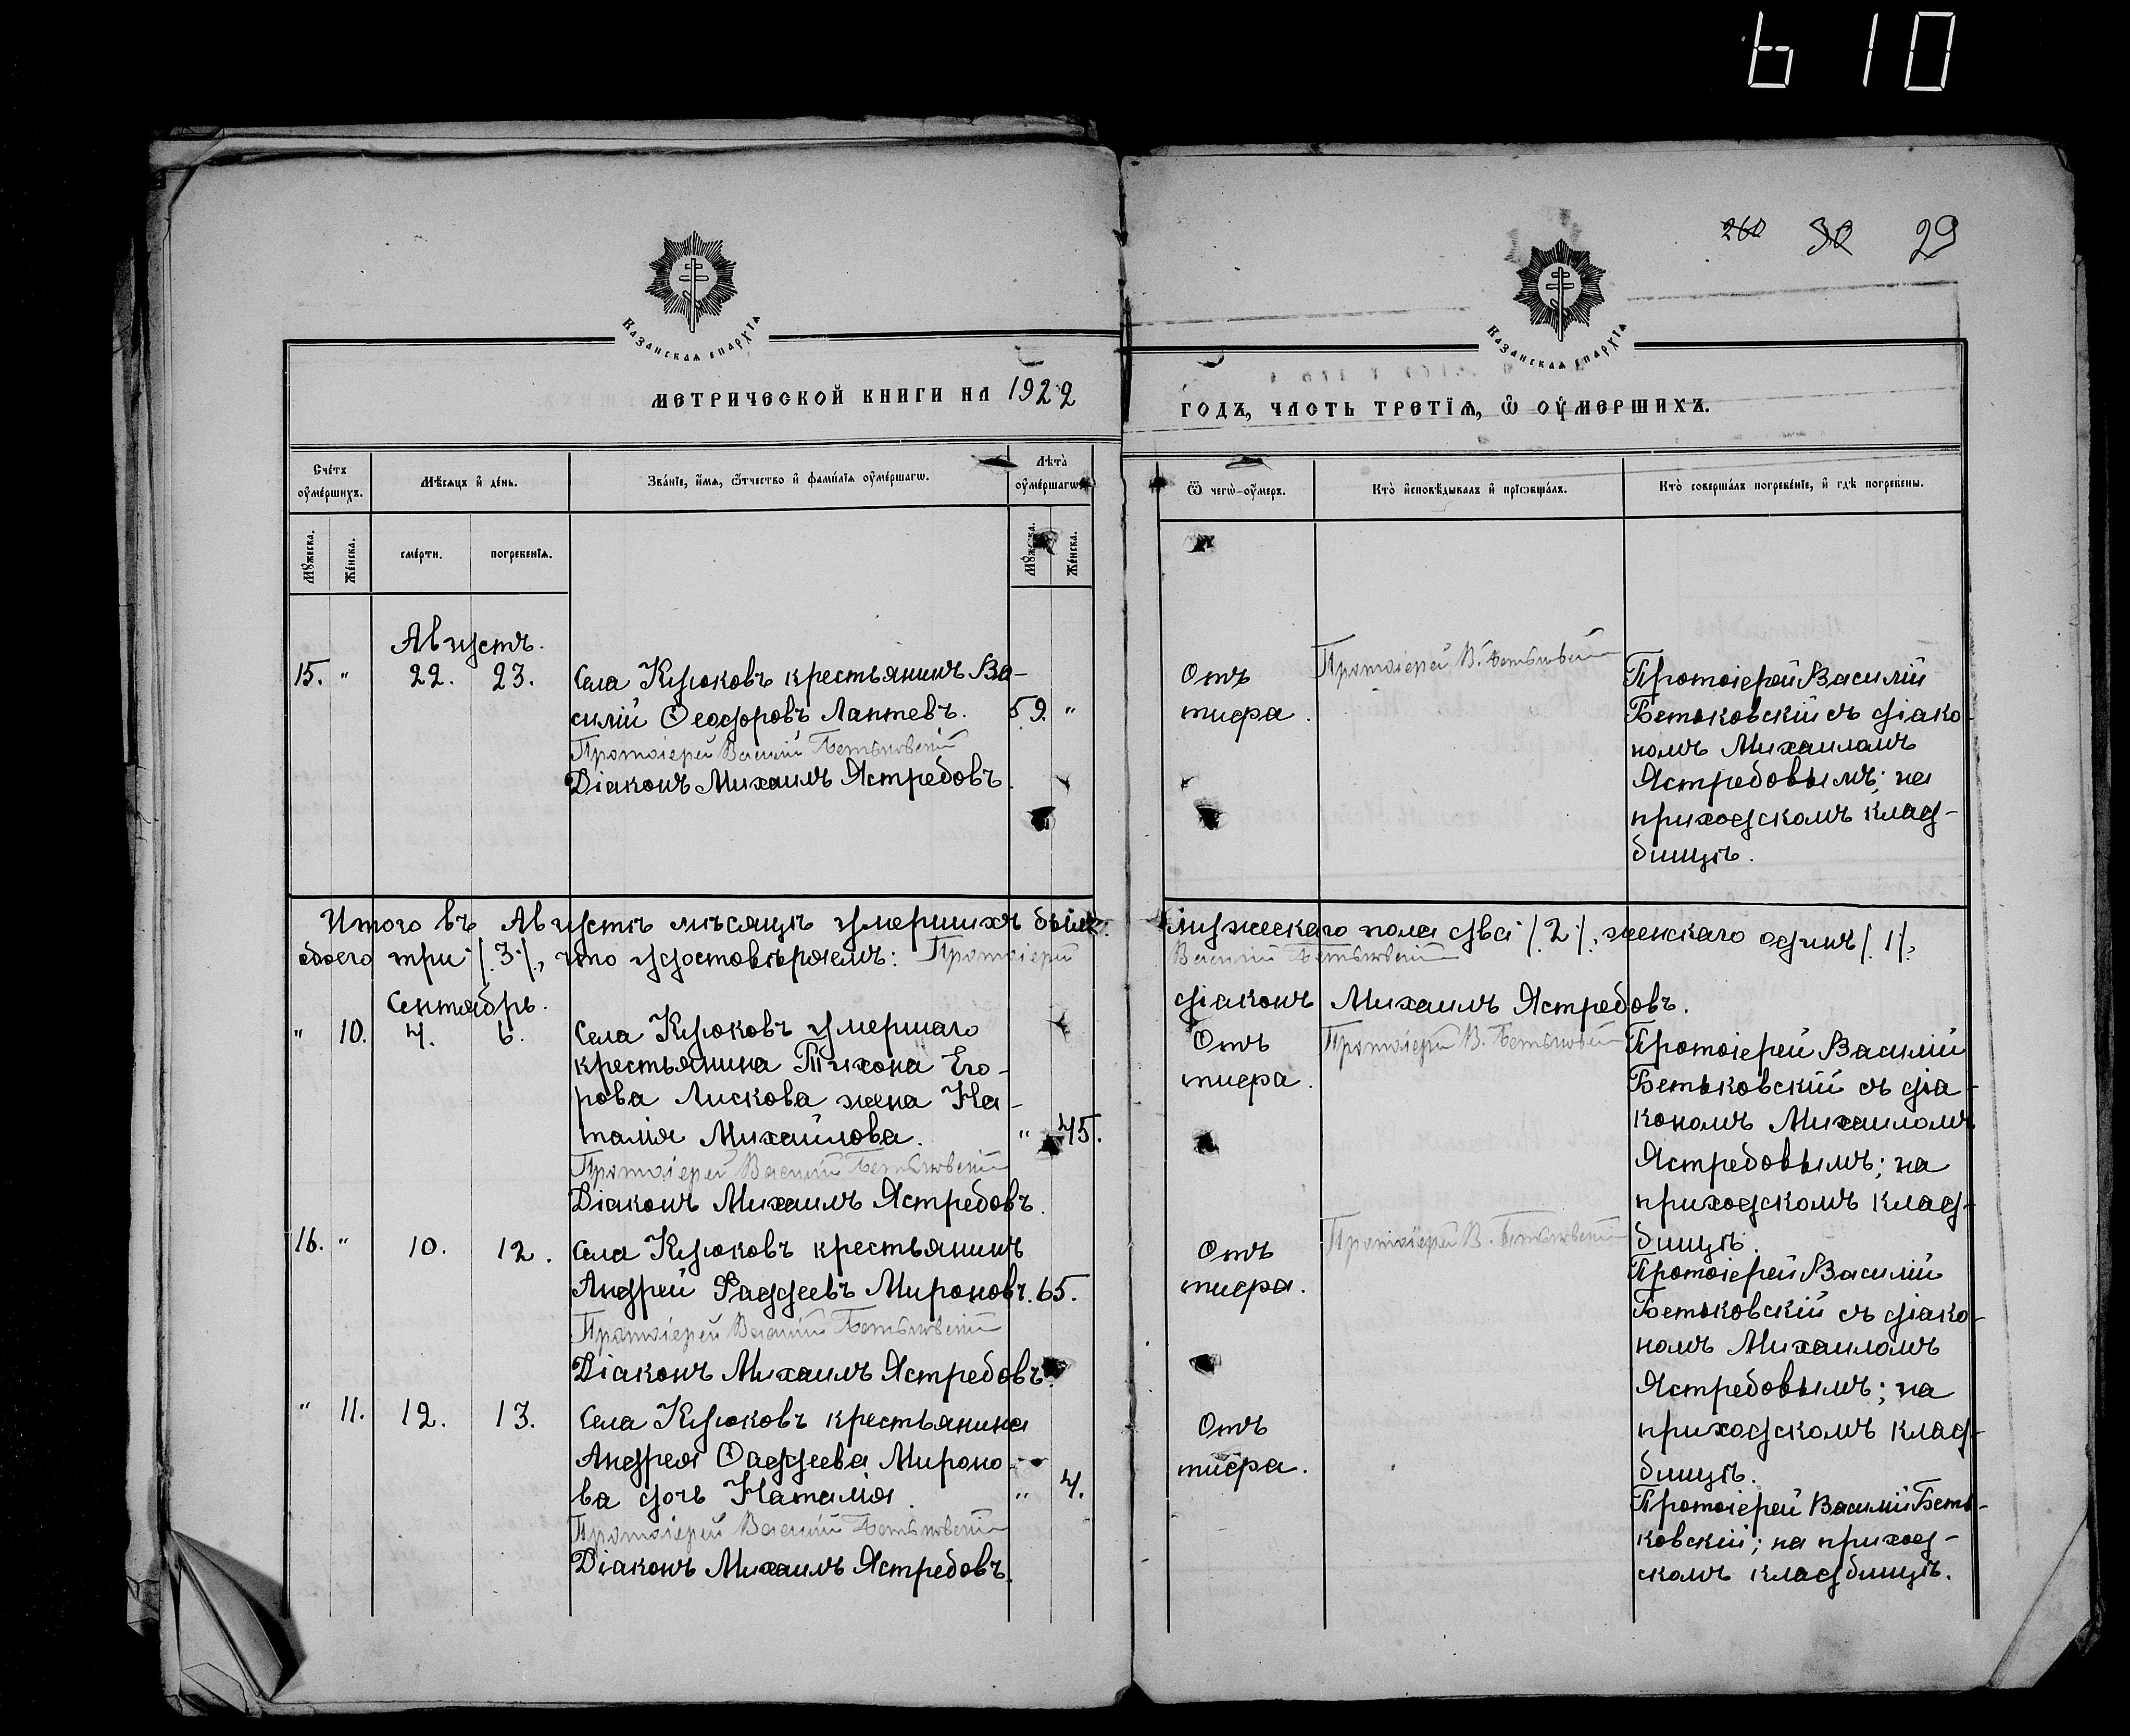 610
260 30 29
Казанская епархїя
Казанская епархїя
метрической книги на 1922
годъ, часть третїѧ, ѽ оумершихъ.
Счéтъ оумéршихъ.
Мѣсяцъ и дéнь.
Звáнїе, имѧ, ѻтчество и фамилїѧ оумéршагѡ.
Лѣта оумéршагѡ
Ѿ чегѡ оумеръ.
Ктò исповѣдывалъ и прїѡбщáлъ.
Ктò совершáлъ погребéнїе, и гдѣ погребены.
Мужеска.
Жéнска.
смéрти.
погребенїѧ.
Мужеска.
Жéнска.
Августъ.
15. " 22. 23. Села Кирюковъ крестьянинъ Ва-
силій Ѳеодоровъ Лаптевъ. 59. "
Протоіерей Василій Бетьковскій
Діаконъ Михаилъ Ястребовъ.
Отъ
тифа.
Протоіерей В. Бетьковскій
Протоіерей Василій
Бетьковскій съ діако-
номъ Михаиломъ
Ястребовымъ; на
приходскомъ клад-
бищѣ.
Итого въ Августѣ мѣсяцѣ умершихъ было: мужескаго пола два /.2./, женскаго одинъ /.1./,
обоего три /.3./, что удостовѣряемъ: Протоіерей Василій Бетьковскій
діаконъ Михаилъ Ястребовъ.
Сентябрь.
" 10. 4. 6. Села Кирюковъ умершаго
крестьянина Тихона Его-
рова Лискова жена На-
талія Михайлова. " 45.
Протоіерей Василій Бетьковскій
Діаконъ Михаилъ Ястребовъ.
Отъ
тифа.
Протоіерей В. Бетьковскій
Протоіерей Василій
Бетьковскій съ діа-
кономъ Михаиломъ
Ястребовымъ; на
приходскомъ клад-
бищѣ.
16. " 10. 12. Села Кирюковъ крестьянинъ
Андрей Фаддеевъ Мироновъ. 65.
Протоіерей Василій Бетьковскій
Діаконъ Михаилъ Ястребовъ.
Отъ
тифа.
Протоіерей В. Бетьковскій
Протоіерей Василій
Бетьковскій съ діако-
номъ Михаиломъ
Ястребовымъ; на
приходскомъ клад-
бищѣ.
" 11. 12. 13. Села Кирюковъ крестьянина
Андрея Ѳаддеева Мироно-
ва дочь Наталія. " 4.
Протоіерей Василій Бетьковскій
Діаконъ Михаилъ Ястребовъ.
Отъ
тифа.
Протоіерей Василій Беть-
ковскій; на приход-
скомъ кладбищѣ.